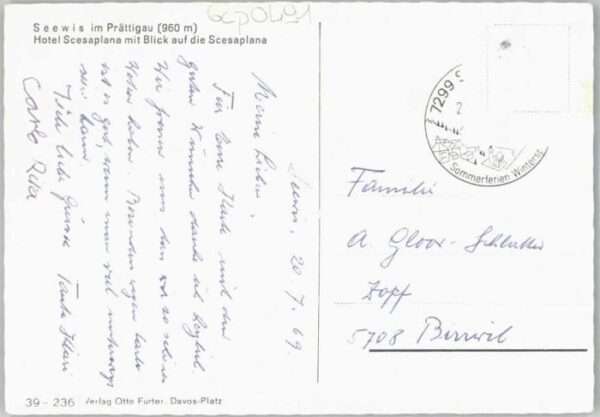 gcp0491
Seewis im Prättigau (960 m)
Hotel Scesaplana mit Blick auf die Scesaplana
Seewis, 20.7.69
Meine Lieben,
Für Eure Karte mit den
guten Wünschen danke ich herzlich.
Wir freuen uns dass so schön
Wetter haben. Besonders wegen
ist es gut, wenn man viel unterwegs
sein kann.
Viele liebe Grüsse Tante Klari
Carlo Reka
7299 S
Sommerferien Winters
Familie
A. Gloor-Schlatter
Zopf
5708 Birrwil
39 - 236 Verlag Otto Furter, Davos-Platz